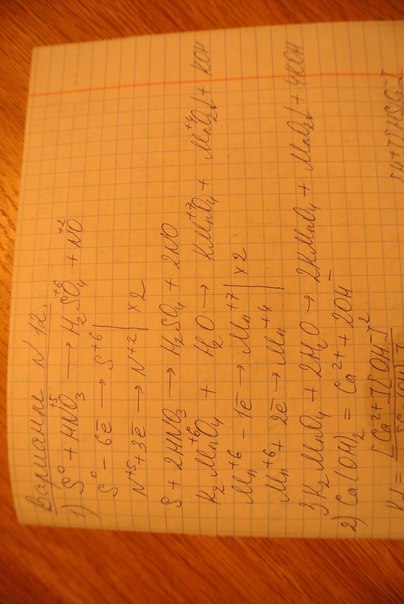 Вариант N 12.
1) S⁰ + HN⁺⁵O₃ → H₂S⁺⁶O₄ + N⁺²O
S⁰ - 6ē → S⁺⁶
N⁺⁵ + 3ē → N⁺² | x 2
S + 2HNO₃ → H₂SO₄ + 2NO
K₂Mn⁺⁶O₄ + H₂O → KMn⁺⁷O₄ + Mn⁺⁴O₂↓ + KOH
Mn⁺⁶ - 1ē → Mn⁺⁷ | x 2
Mn⁺⁶ + 2ē → Mn⁺⁴ |
3K₂MnO₄ + 2H₂O → 2KMnO₄ + MnO₂↓ + 4KOH
2) Ca(OH)₂ = Ca²⁺ + 2OH⁻
K1 = [Ca²⁺][OH⁻]²